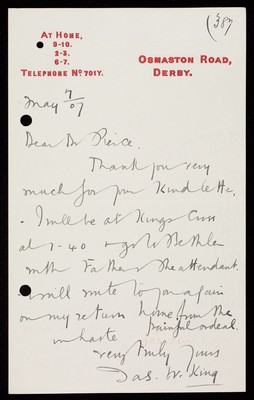 (387
AT HOME,
9-10.
2-3.
6-7.
TELEPHONE No 701Y.
OSMASTON ROAD,
DERBY.
May 7/07
Dear Dr Pierce.
Thank you very
much for your kind letter,
- I will be at Kings Cross
at 1-40 & go to Bethlem
with Father & the attendant.
- will write to you again
on my return home from the
painful ordeal.
in haste
very truly yours
Jas. W. King